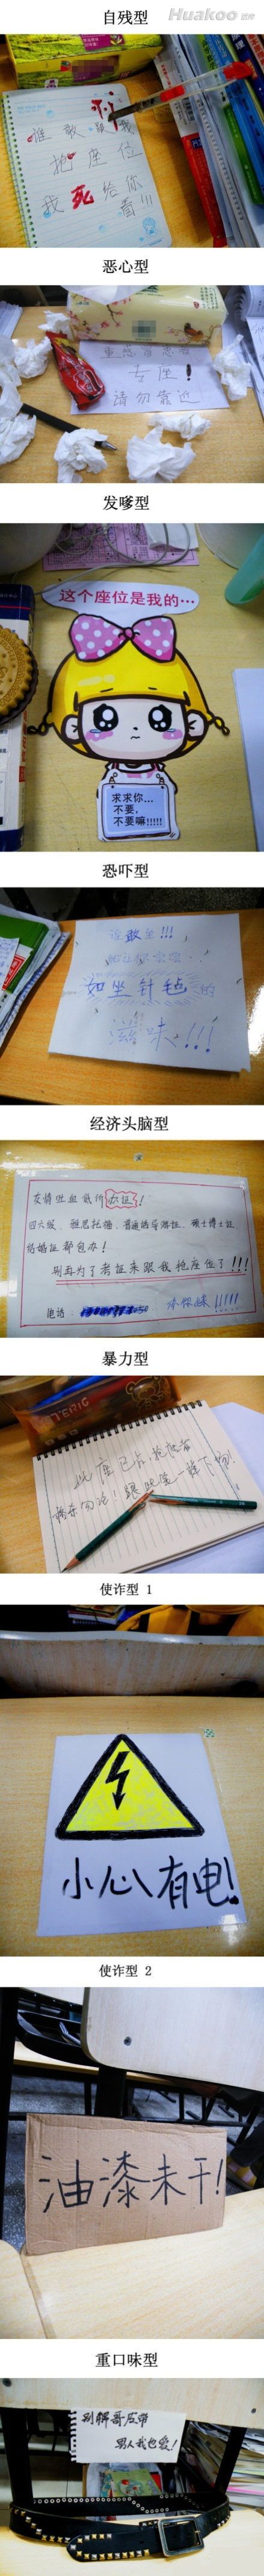 自残型
Huakoo
谁敢
抢座位
我死给你
看!!!
恶心型
重感冒患者
专座!
请勿靠近
发嗲型
这个座位是我的…
求求你…
不要,
不要嘛!!!!!
恐吓型
谁敢坐!!!
如坐针毡的
滋味!!!
经济头脑型
友情吐血低价办证!
四六级、雅思托福、普通话导游证、硕士博士证
结婚证都包办!
别再为了考证来跟我抢座位了!!!
电话:
暴力型
此座已占,抢座者
使诈型 1
小心有电!
使诈型 2
油漆未干!
重口味型
别解哥皮带
男人我也爱!